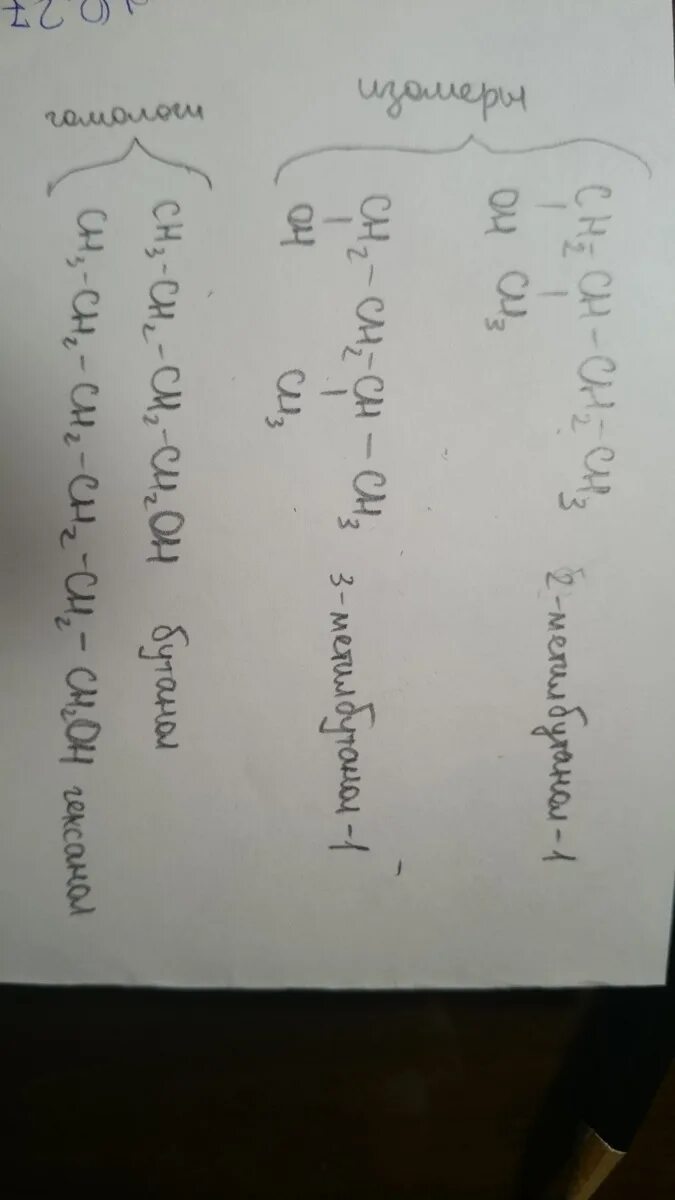 изомеры
CH2-CH-CH2-CH3 2-метилбутанол-1
OH CH3
CH2-CH2-CH-CH3 3-метилбутанол-1
OH CH3
гомологи
CH3-CH2-CH2-CH2OH бутанол
CH3-CH2-CH2-CH2-CH2-CH2OH гексанол